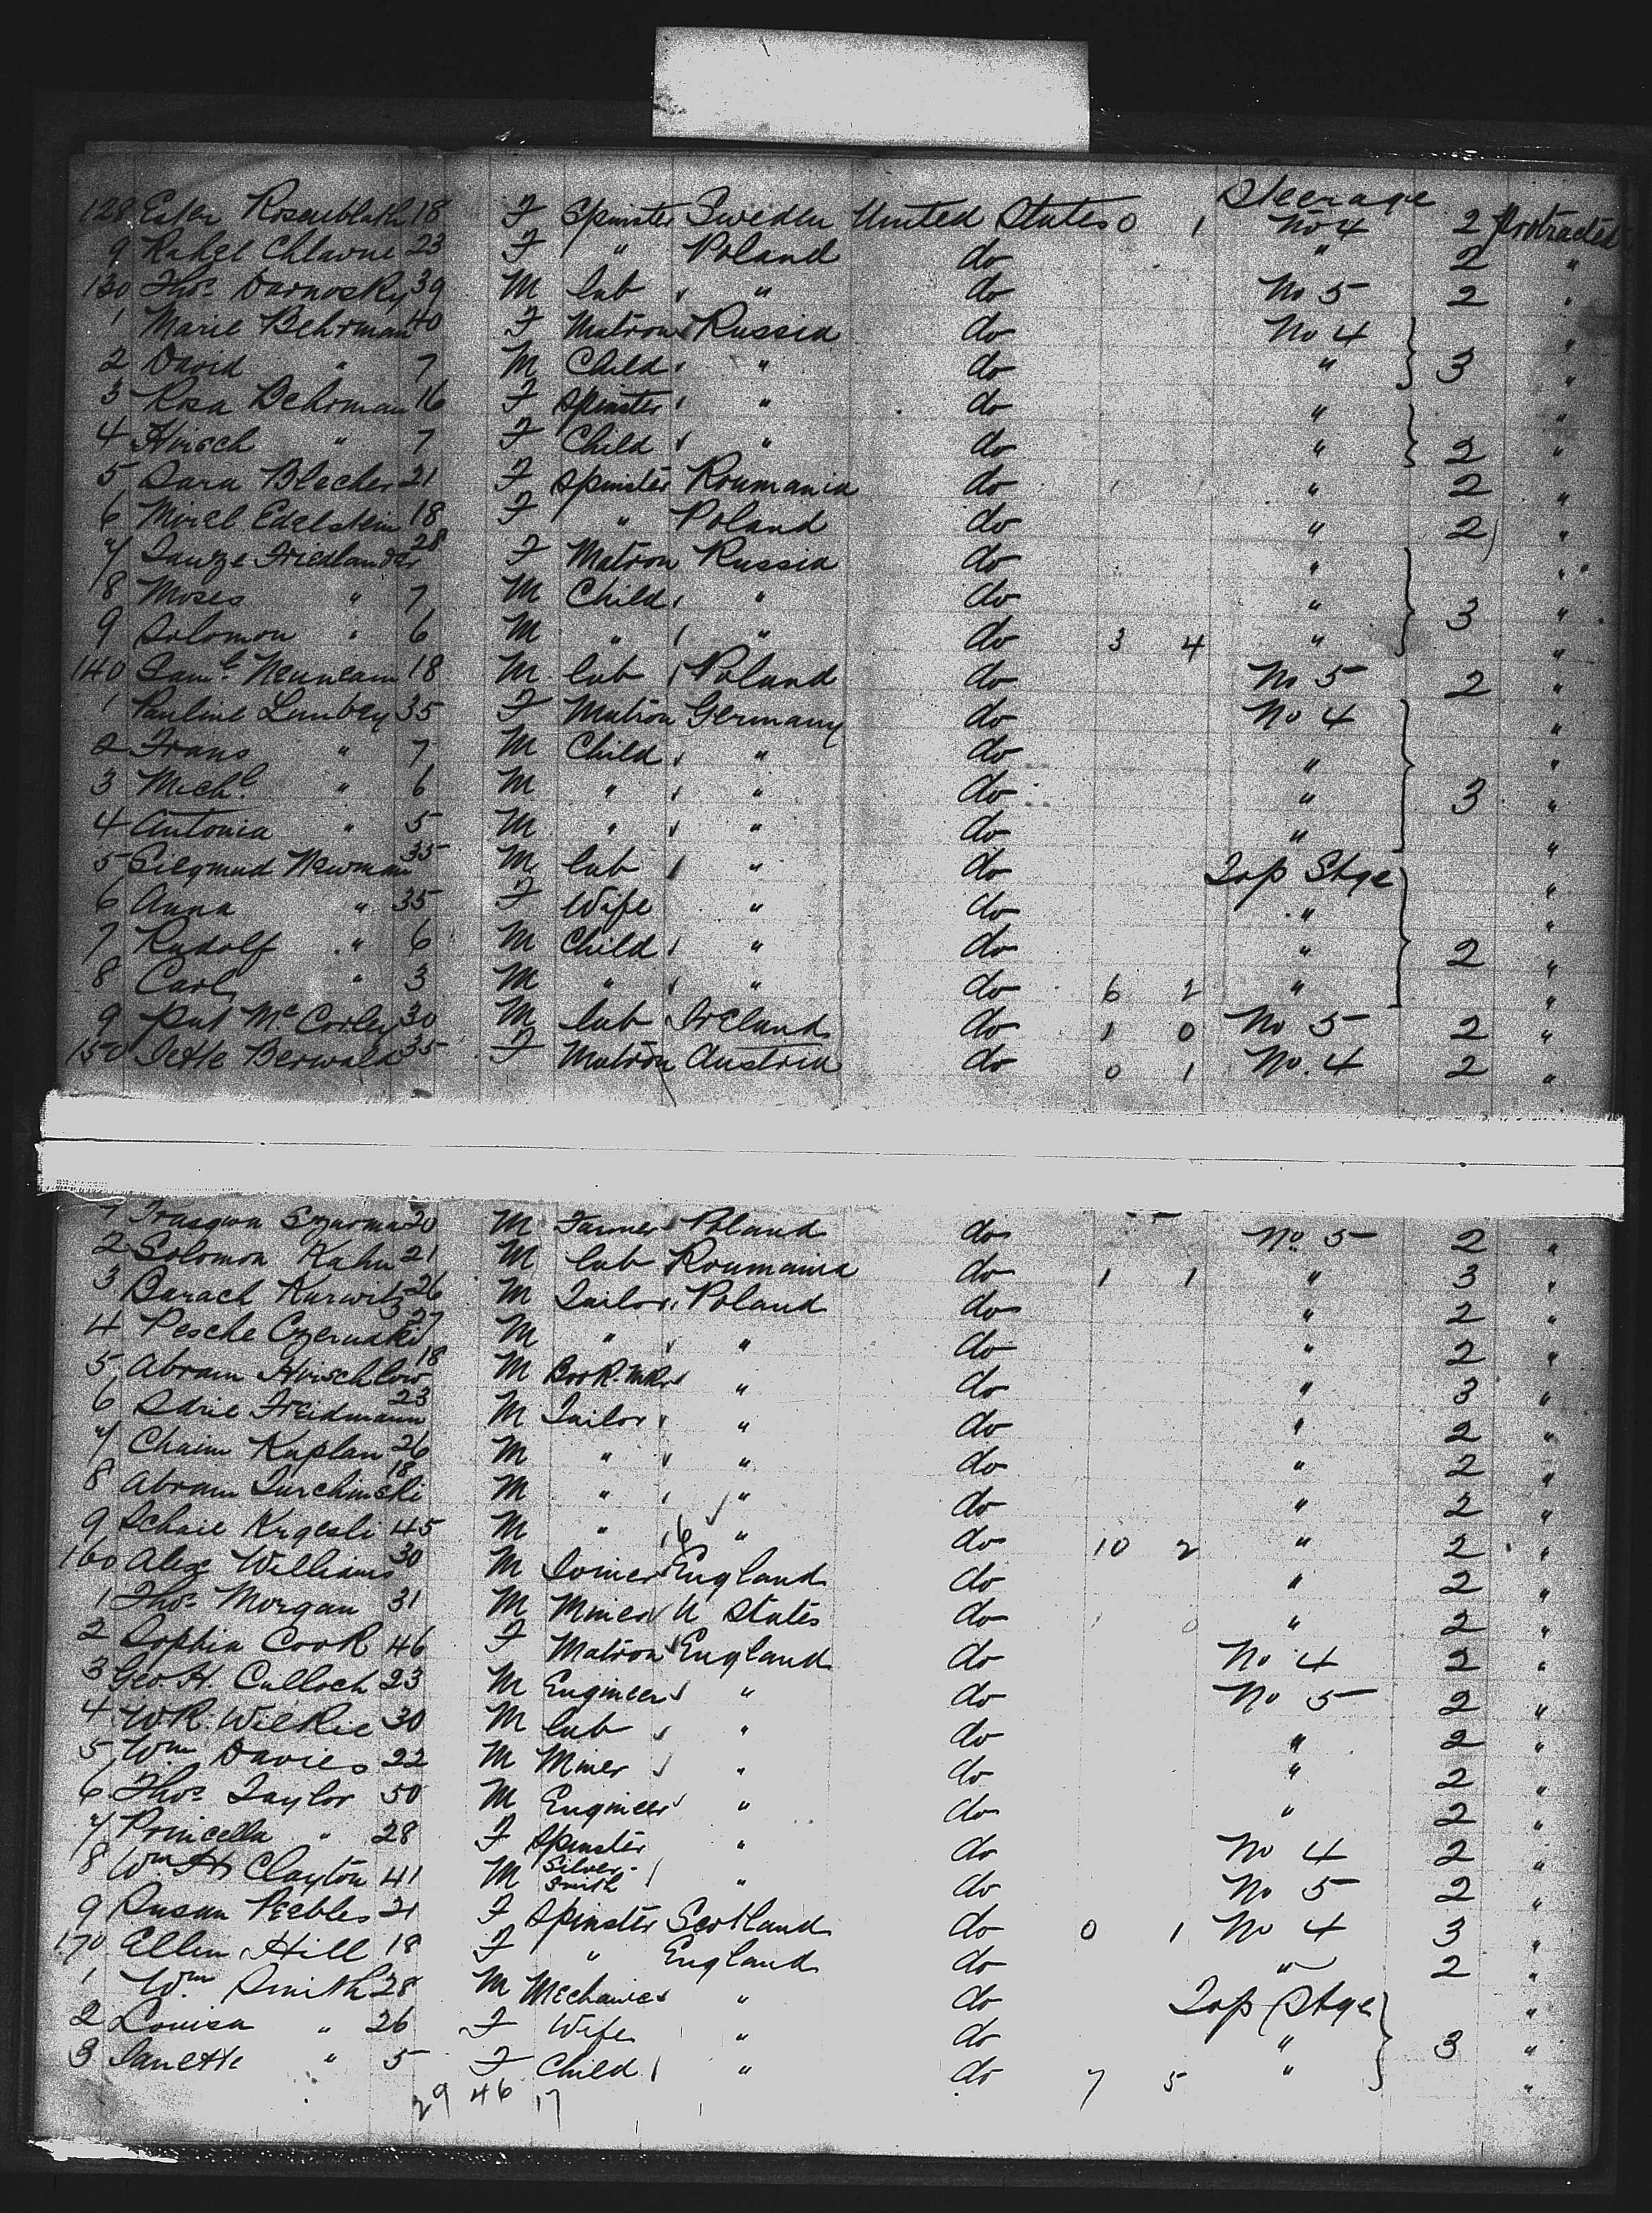 Steerage
128 Ester Rosenblath 18 F Spinster Sweden United States 0 1 No 4 2 Protracted
9 Rahel Chlavne 23 F " Poland do " 2 "
130 Thos. Darnosky 39 M Lab " do No 5 2 "
1 Marie Behrman 40 F Matron Russia do No 4 "
2 David " 7 M Child " do " 3 "
3 Rosa Behrman 16 F Spinster " do " "
4 Hirsch " 7 F Child " do " 2 "
5 Sara Blecher 21 F Spinster Roumania do " 2 "
6 Mirel Edelstein 18 F " Poland do " 2 "
7 Friedlander 28 F Matron Russia do " "
8 Moses " 7 M Child " do " 3 "
9 Solomon " 6 M " " do 3 4 " "
140 Saml. 18 M Lab Poland do No 5 2 "
1 Pauline Lumbey 35 F Matron Germany do No 4 "
2 Frans " 7 M Child " do " "
3 Michl. " 6 M " " do " 3 "
4 Antonia " 5 M " " do " "
5 Siegmud Newman 35 M Lab " do Top Stge "
6 Anna " 35 F Wife " do " "
7 Rudolf " 6 M Child " do " 2 "
8 Carl " 3 M " " do 6 2 " "
9 Pat McCorley 30 M Lab Ireland do 1 0 No 5 2 "
150 Jette Berwald 35 F Matron Austria do 0 1 No. 4 2 "
20 M Farmer Poland do No. 5 2 "
2 Solomon Kahn 21 M Lab Roumania do 1 1 " 3 "
3 Barach Kurwitz 26 M Tailor Poland do " 2 "
4 Pesche 27 M " " do " 2 "
5 Abram Hirschlow 18 M Book.Mkr " do " 3 "
6 Freidmann 23 M Tailor " do " 2 "
7 Chaim Kaplan 26 M " " do " 2 "
8 Abram Turchinski 18 M " " do " 2 "
9 Schaie 45 M " 6 " do 10 2 " 2 "
160 Alex Williams 30 M Joiner England do " 2 "
1 Thos. Morgan 31 M Miner U States do 1 0 " 2 "
2 Sophia Cook 46 F Matron England do No 4 2 "
3 Geo H. Culloch 23 M Engineer " do No 5 2 "
4 W R. Wilkie 30 M Lab " do " 2 "
5 Wm Davies 22 M Miner " do " 2 "
6 Thos. Taylor 50 M Engineer " do " 2 "
7 Princella " 28 F Spinster " do No 4 2 "
8 Wm H Clayton 41 M Silver-Smith " do No 5 2 "
9 Susan Peebles 21 F Spinster Scotland do 0 1 No 4 3 "
170 Ellen Hill 18 F " England do " 2 "
1 Wm Smith 28 M Mechanic " do Top Stge "
2 Louisa " 26 F Wife " do " 3 "
3 Janette " 5 F Child " do 7 5 " "
29 46 17